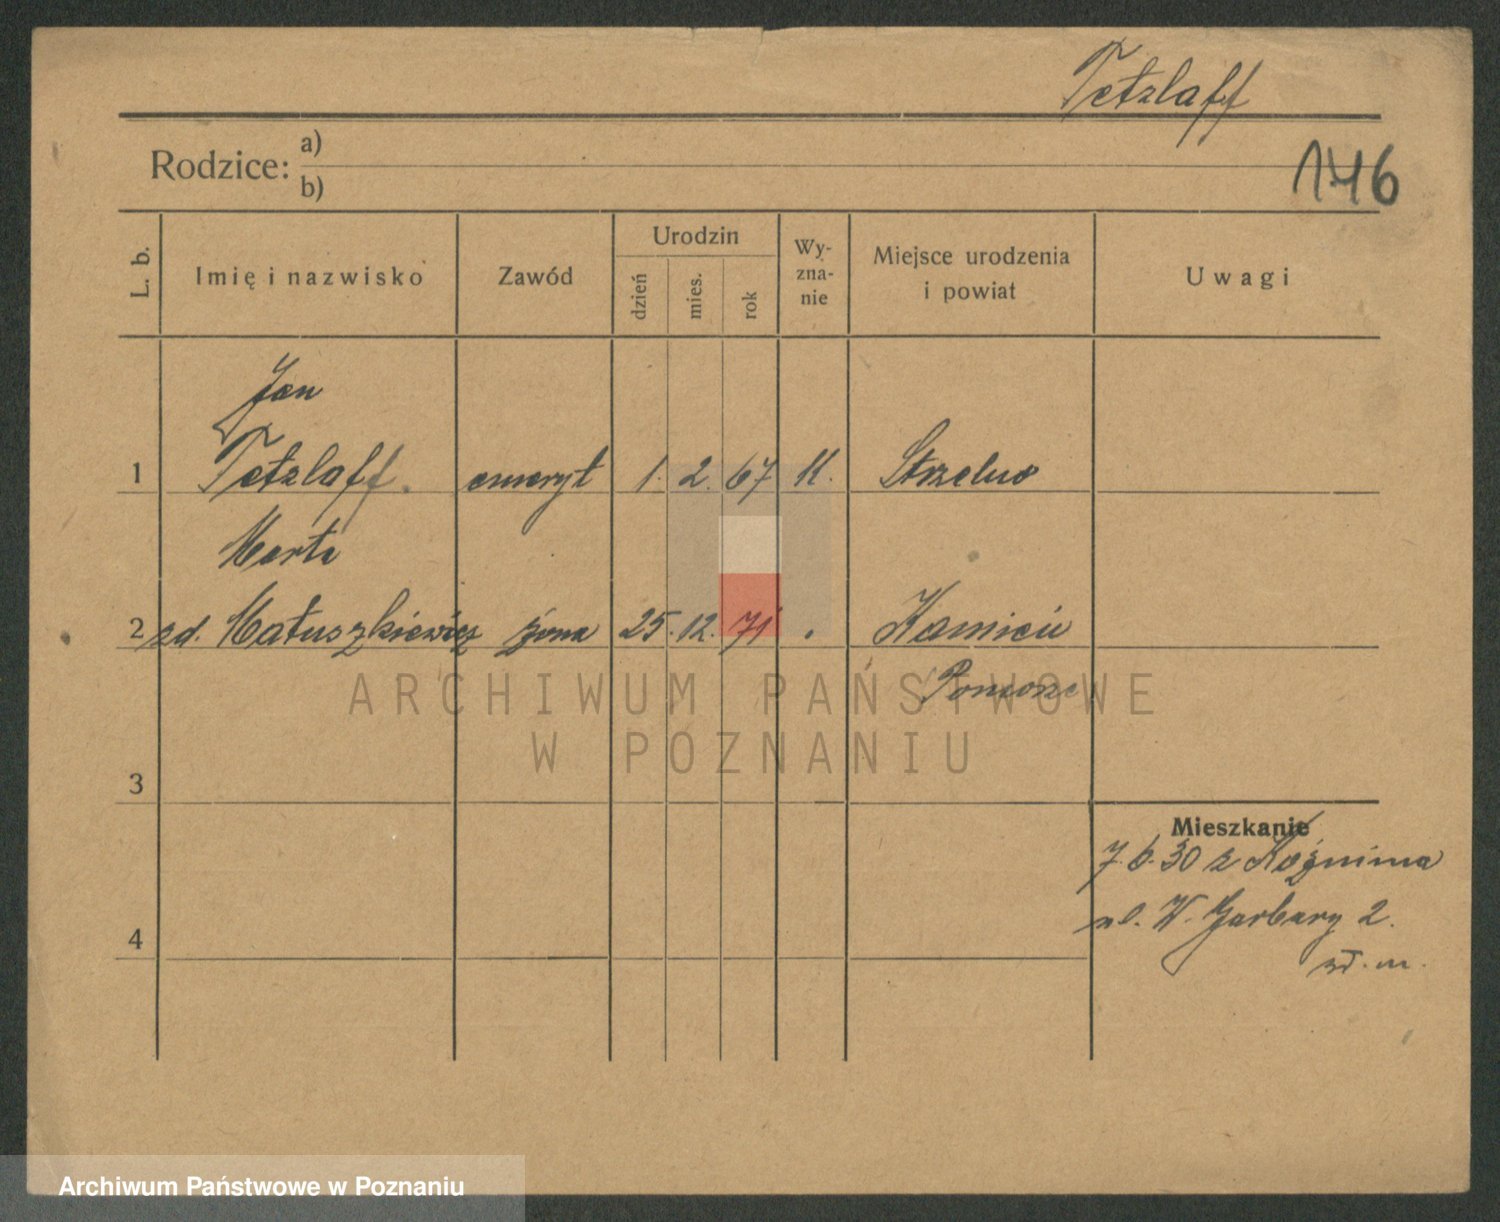 Tetzlaff
Rodzice: a)
b)
146
L. b.
Imię i nazwisko
Zawód
Urodzin
dzień
mies.
rok
Wy-
zna-
nie
Miejsce urodzenia
i powiat
Uwagi
Jan
1 Tetzlaff. emeryt 1. 2. 67 Strzelno
Marta
2 zd. Matuszkiewicz żona 25. 12. 71 Kamień
Pomorze
ARCHIWUM PAŃSTWOWE
W POZNANIU
3
Mieszkanie
7.6.30 z Koźmina
ul. W. Garbary 2.
4
Archiwum Państwowe w Poznaniu